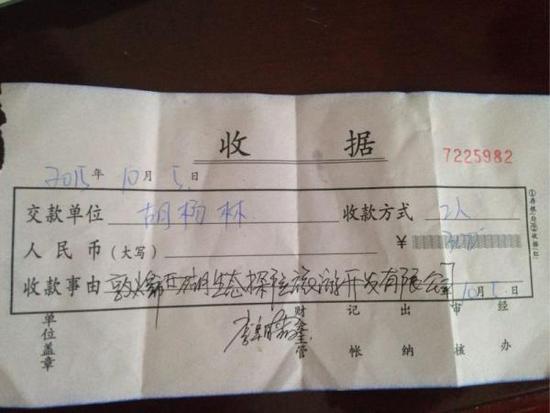 收 据
7225982
2015年 10月 5日
交款单位 胡杨林 收款方式 2人
人民币(大写) ¥
收款事由 敦煌西湖生态探险旅游开发有限公司 10月5日
单位盖章 财会主管 记帐 出纳 审核 经办